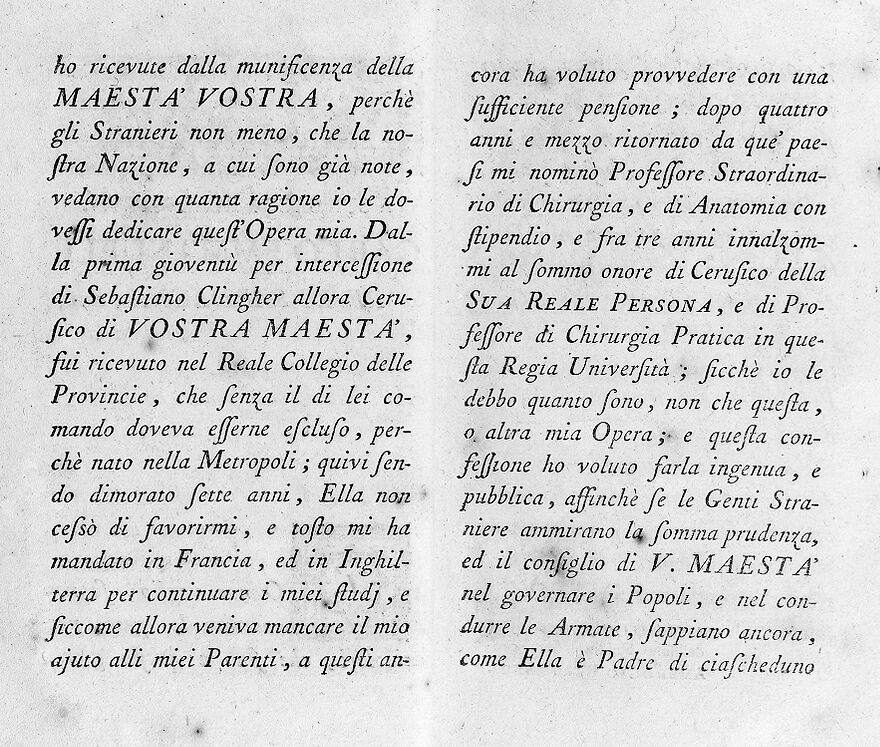 ho ricevute dalla munificenza della
MAESTA' VOSTRA, perchè
gli Stranieri non meno, che la no-
ſtra Nazione, a cui ſono già note,
vedano con quanta ragione io le do-
veſſi dedicare queſt'Opera mia. Dal-
la prima gioventù per interceſſione
di Sebaſtiano Clingher allora Ceru-
ſico di VOSTRA MAESTA',
fui ricevuto nel Reale Collegio delle
Provincie, che ſenza il di lei co-
mando doveva eſſerne eſcluſo, per-
chè nato nella Metropoli; quivi ſen-
do dimorato ſette anni, Ella non
ceſsò di favorirmi, e toſto mi ha
mandato in Francia, ed in Inghil-
terra per continuare i miei ſtudj, e
ſiccome allora veniva mancare il mio
ajuto alli miei Parenti, a queſti an-
cora ha voluto provvedere con una
ſufficiente penſione; dopo quattro
anni e mezzo ritornato da que' pae-
ſi mi nominò Profeſſore Straordina-
rio di Chirurgia, e di Anatomia con
ſtipendio, e fra tre anni innalzom-
mi al ſommo onore di Ceruſico della
SUA REALE PERSONA, e di Pro-
feſſore di Chirurgia Pratica in que-
ſta Regia Univerſità; ſicchè io le
debbo quanto ſono, non che queſta,
o altra mia Opera; e queſta con-
feſſione ho voluto farla ingenua, e
pubblica, affinchè ſe le Genti Stra-
niere ammirano la ſomma prudenza,
ed il conſiglio di V. MAESTA'
nel governare i Popoli, e nel con-
durre le Armate, ſappiano ancora,
come Ella è Padre di ciaſcheduno